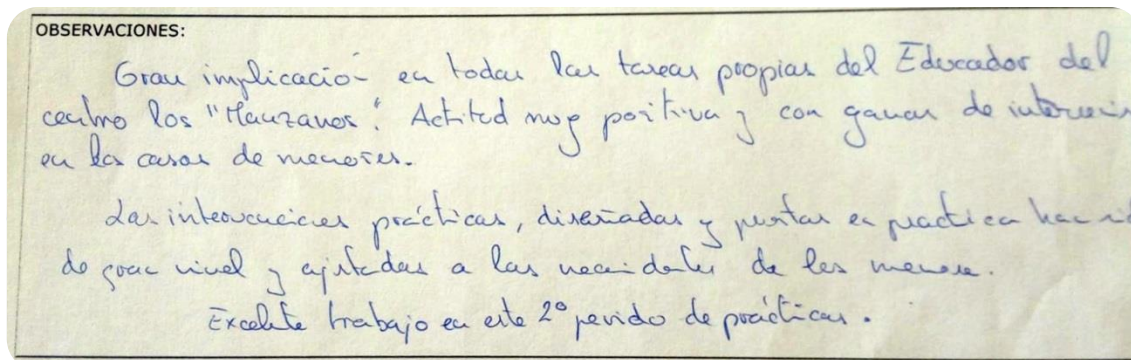 OBSERVACIONES:
Gran implicación en todas las tareas propias del Educador del
centro los "Manzanos". Actitud muy positiva y con ganas de intervenir
en los casos de menores.
Las intervenciones prácticas, diseñadas y puestas en practica han sid
de gran nivel y ajustadas a las necesidades de los menores.
Excelente trabajo en este 2º periodo de prácticas.